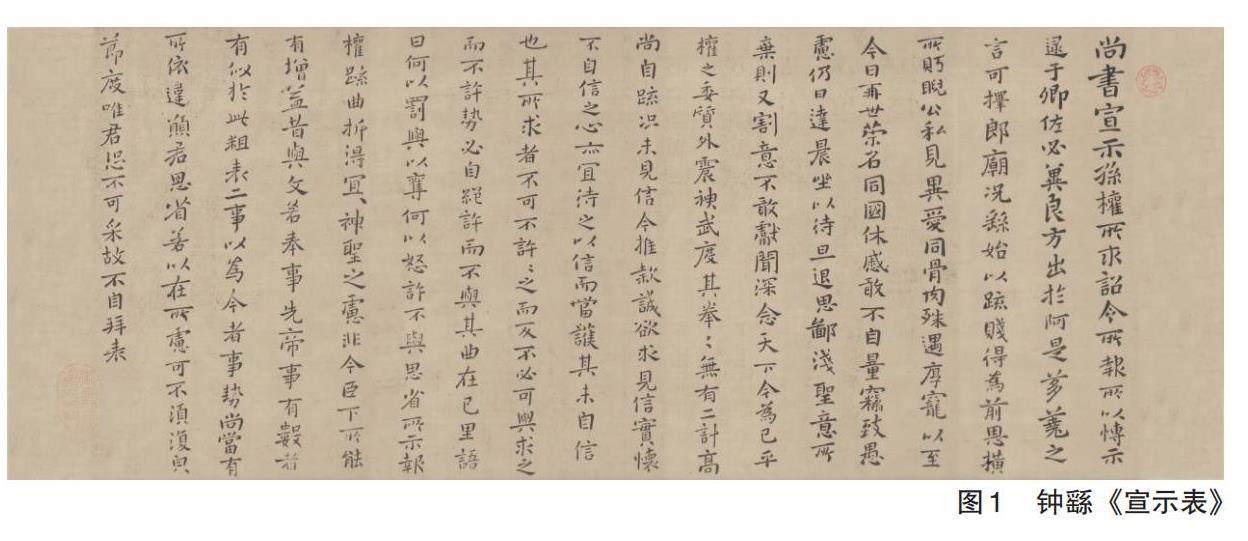 尚書宣示孫權所求詔令所報所以博示
逮于卿佐必冀良方出於阿是芻蕘之
言可擇郎廟況繇始以疏賤得為前恩橫
所眄睨公私見異愛同骨肉殊遇厚寵以至
今日再世榮名同國休慼敢不自量竊致愚
慮仍日達晨坐以待旦退思鄙淺聖意所
棄則又割意不敢獻聞深念天下今為已平
權之委質外震神武度其拳〻無有二計高
尚自疏況未見信今推款誠欲求見信實懷
不自信之心亦宜待之以信而當護其未自信
也其所求者不可不許〻之而反不必可與求之
而不許勢必自絕許而不與其曲在己里語
曰何以罰與以奪何以怒許不與思省所示報
權疏曲折得宜〻神聖之慮非今臣下所能
有增益昔與文若奉事先帝事有數者
有似於此粗表二事以為今者事勢尚當有
所依違願君思省若以在所慮可不須復皃
節度唯君恐不可采故不自拜表
图1 钟繇《宣示表》